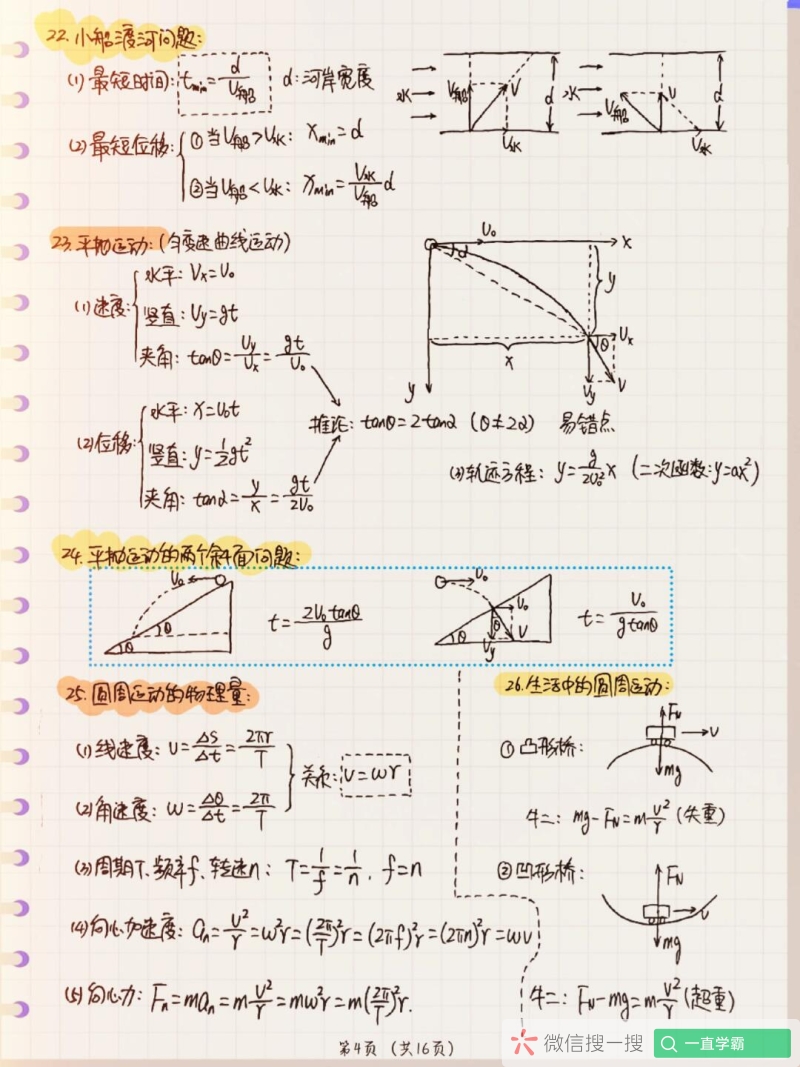 22. 小船渡河问题:
(1) 最短时间: tmin = d/V船 d: 河岸宽度
水 V船 V d V水
水 V船 V d V水
(2) 最短位移: ① 当V船>V水: xmin = d
② 当V船<V水: xmin = V水/V船 d
23. 平抛运动: (匀变速曲线运动)
(1) 速度: 水平: Vx = V0
竖直: Vy = gt
夹角: tanθ = Vy/Vx = gt/V0
V0 x α y x θ Vx Vy V y
(2) 位移: 水平: x = V0t
竖直: y = 1/2 gt²
夹角: tanα = y/x = gt/2V0
推论: tanθ = 2tanα (θ≠2α) 易错点
(3) 轨迹方程: y = g/2V0² x (二次函数: y=ax²)
24. 平抛运动的两个斜面问题:
V0 θ θ t = 2V0tanθ/g
V0 V0 θ θ Vy V t = V0/gtanθ
25. 圆周运动的物理量:
(1) 线速度: V = Δs/Δt = 2πr/T
(2) 角速度: ω = Δθ/Δt = 2π/T
关系: V = ωr
(3) 周期T、频率f、转速n: T = 1/f = 1/n, f = n
(4) 向心加速度: an = V²/r = ω²r = (2π/T)²r = (2πf)²r = (2πn)²r = ωV
(5) 向心力: Fn = man = m V²/r = mω²r = m(2π/T)²r.
26. 生活中的圆周运动:
① 凸形桥: FN V mg
牛二: mg - FN = m V²/r (失重)
② 凹形桥: FN V mg
牛二: FN - mg = m V²/r (超重)
第4页 (共16页)
微信搜一搜 一直学霸